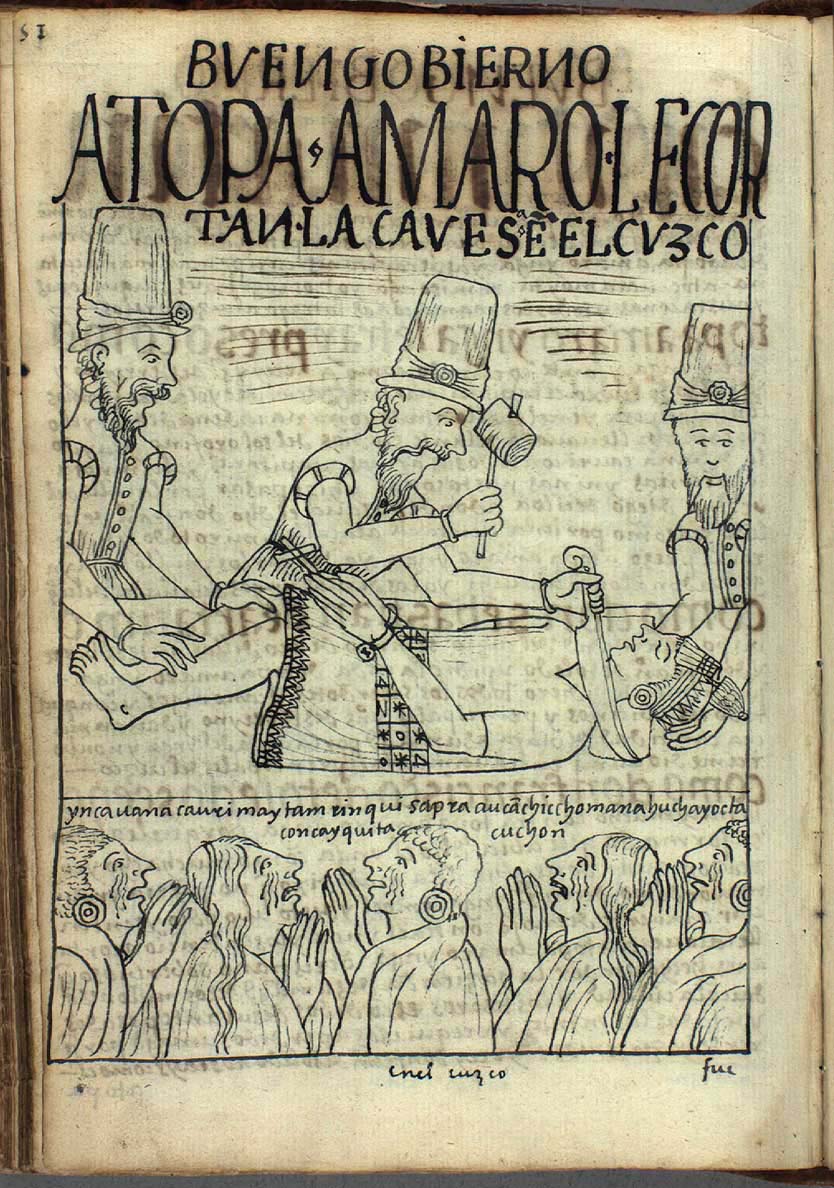 51
BVENGOBIERNO
ATOPA AMARO LE COR
TAN LA CAVESA ẼELCVZCO
yncauanacauri maytam rinqui sapra aucãchiccho mana huchayocta
concayquita cuchon
enel cuzco fue